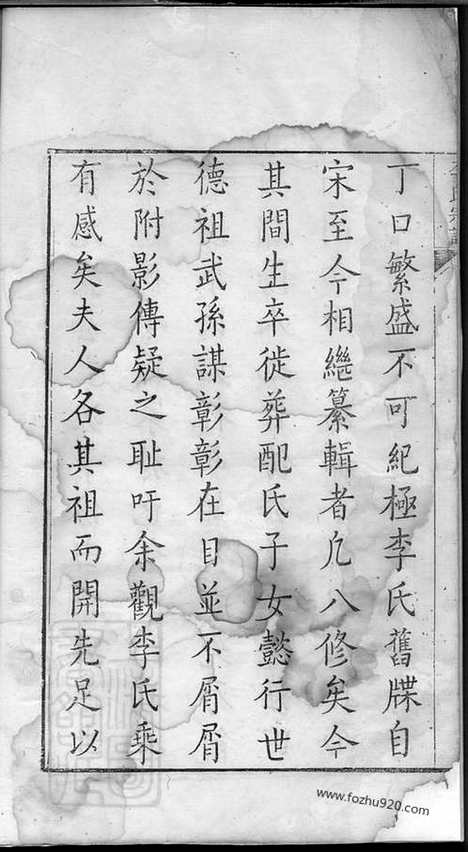 丁口繁盛不可紀極李氏舊牒自
宋至今相繼纂輯者凢八修矣今
其間生卒徙葬配氏子女懿行世
德祖武孫謀彰彰在目並不屑屑
於附影傳疑之耻吁余觀李氏乘
有感矣夫人各其祖而開先足以
www.fozhu920.com